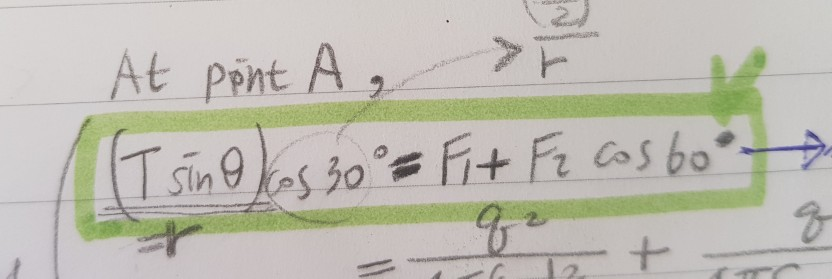 (2)
r
At point A,
(T sinθ) cos 30° = F₁ + F₂ cos 60°
= r
= q² + q